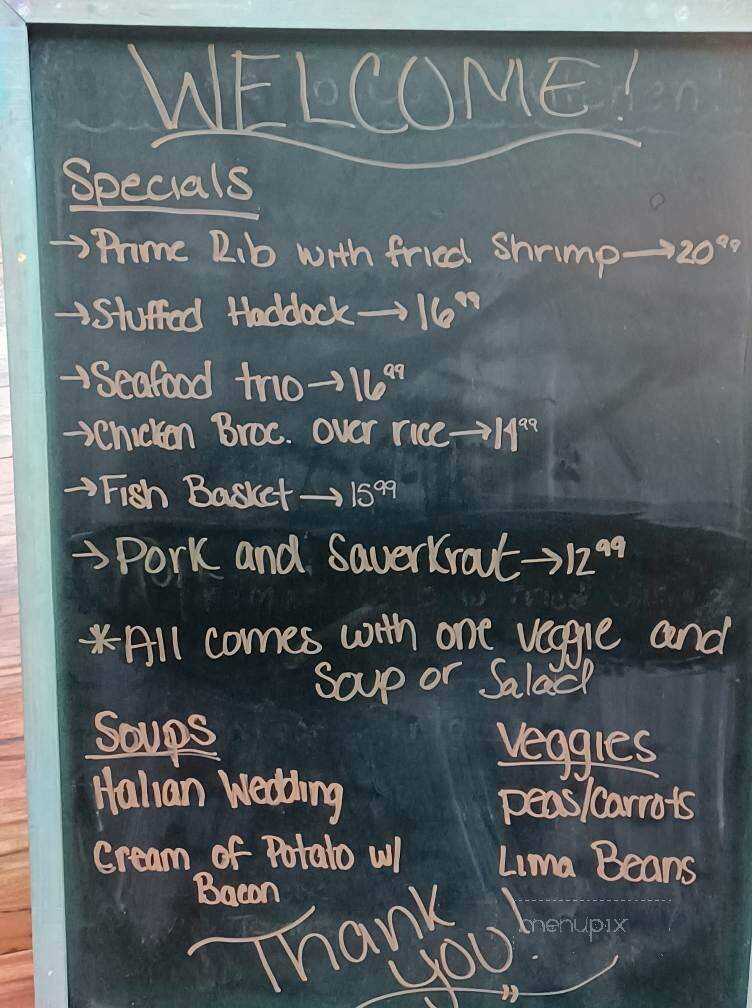 WELCOME!
Specials
→Prime Rib with fried Shrimp→20⁹⁹
→Stuffed Haddock→16⁹⁹
→Seafood trio→16⁹⁹
→Chicken Broc. over rice→14⁹⁹
→Fish Basket→15⁹⁹
→Pork and Sauerkraut→12⁹⁹
*All comes with one veggie and
Soup or Salad
Soups
Italian Wedding
Cream of Potato w/
Bacon
Veggies
peas/carrots
Lima Beans
Thank
you!
menupix